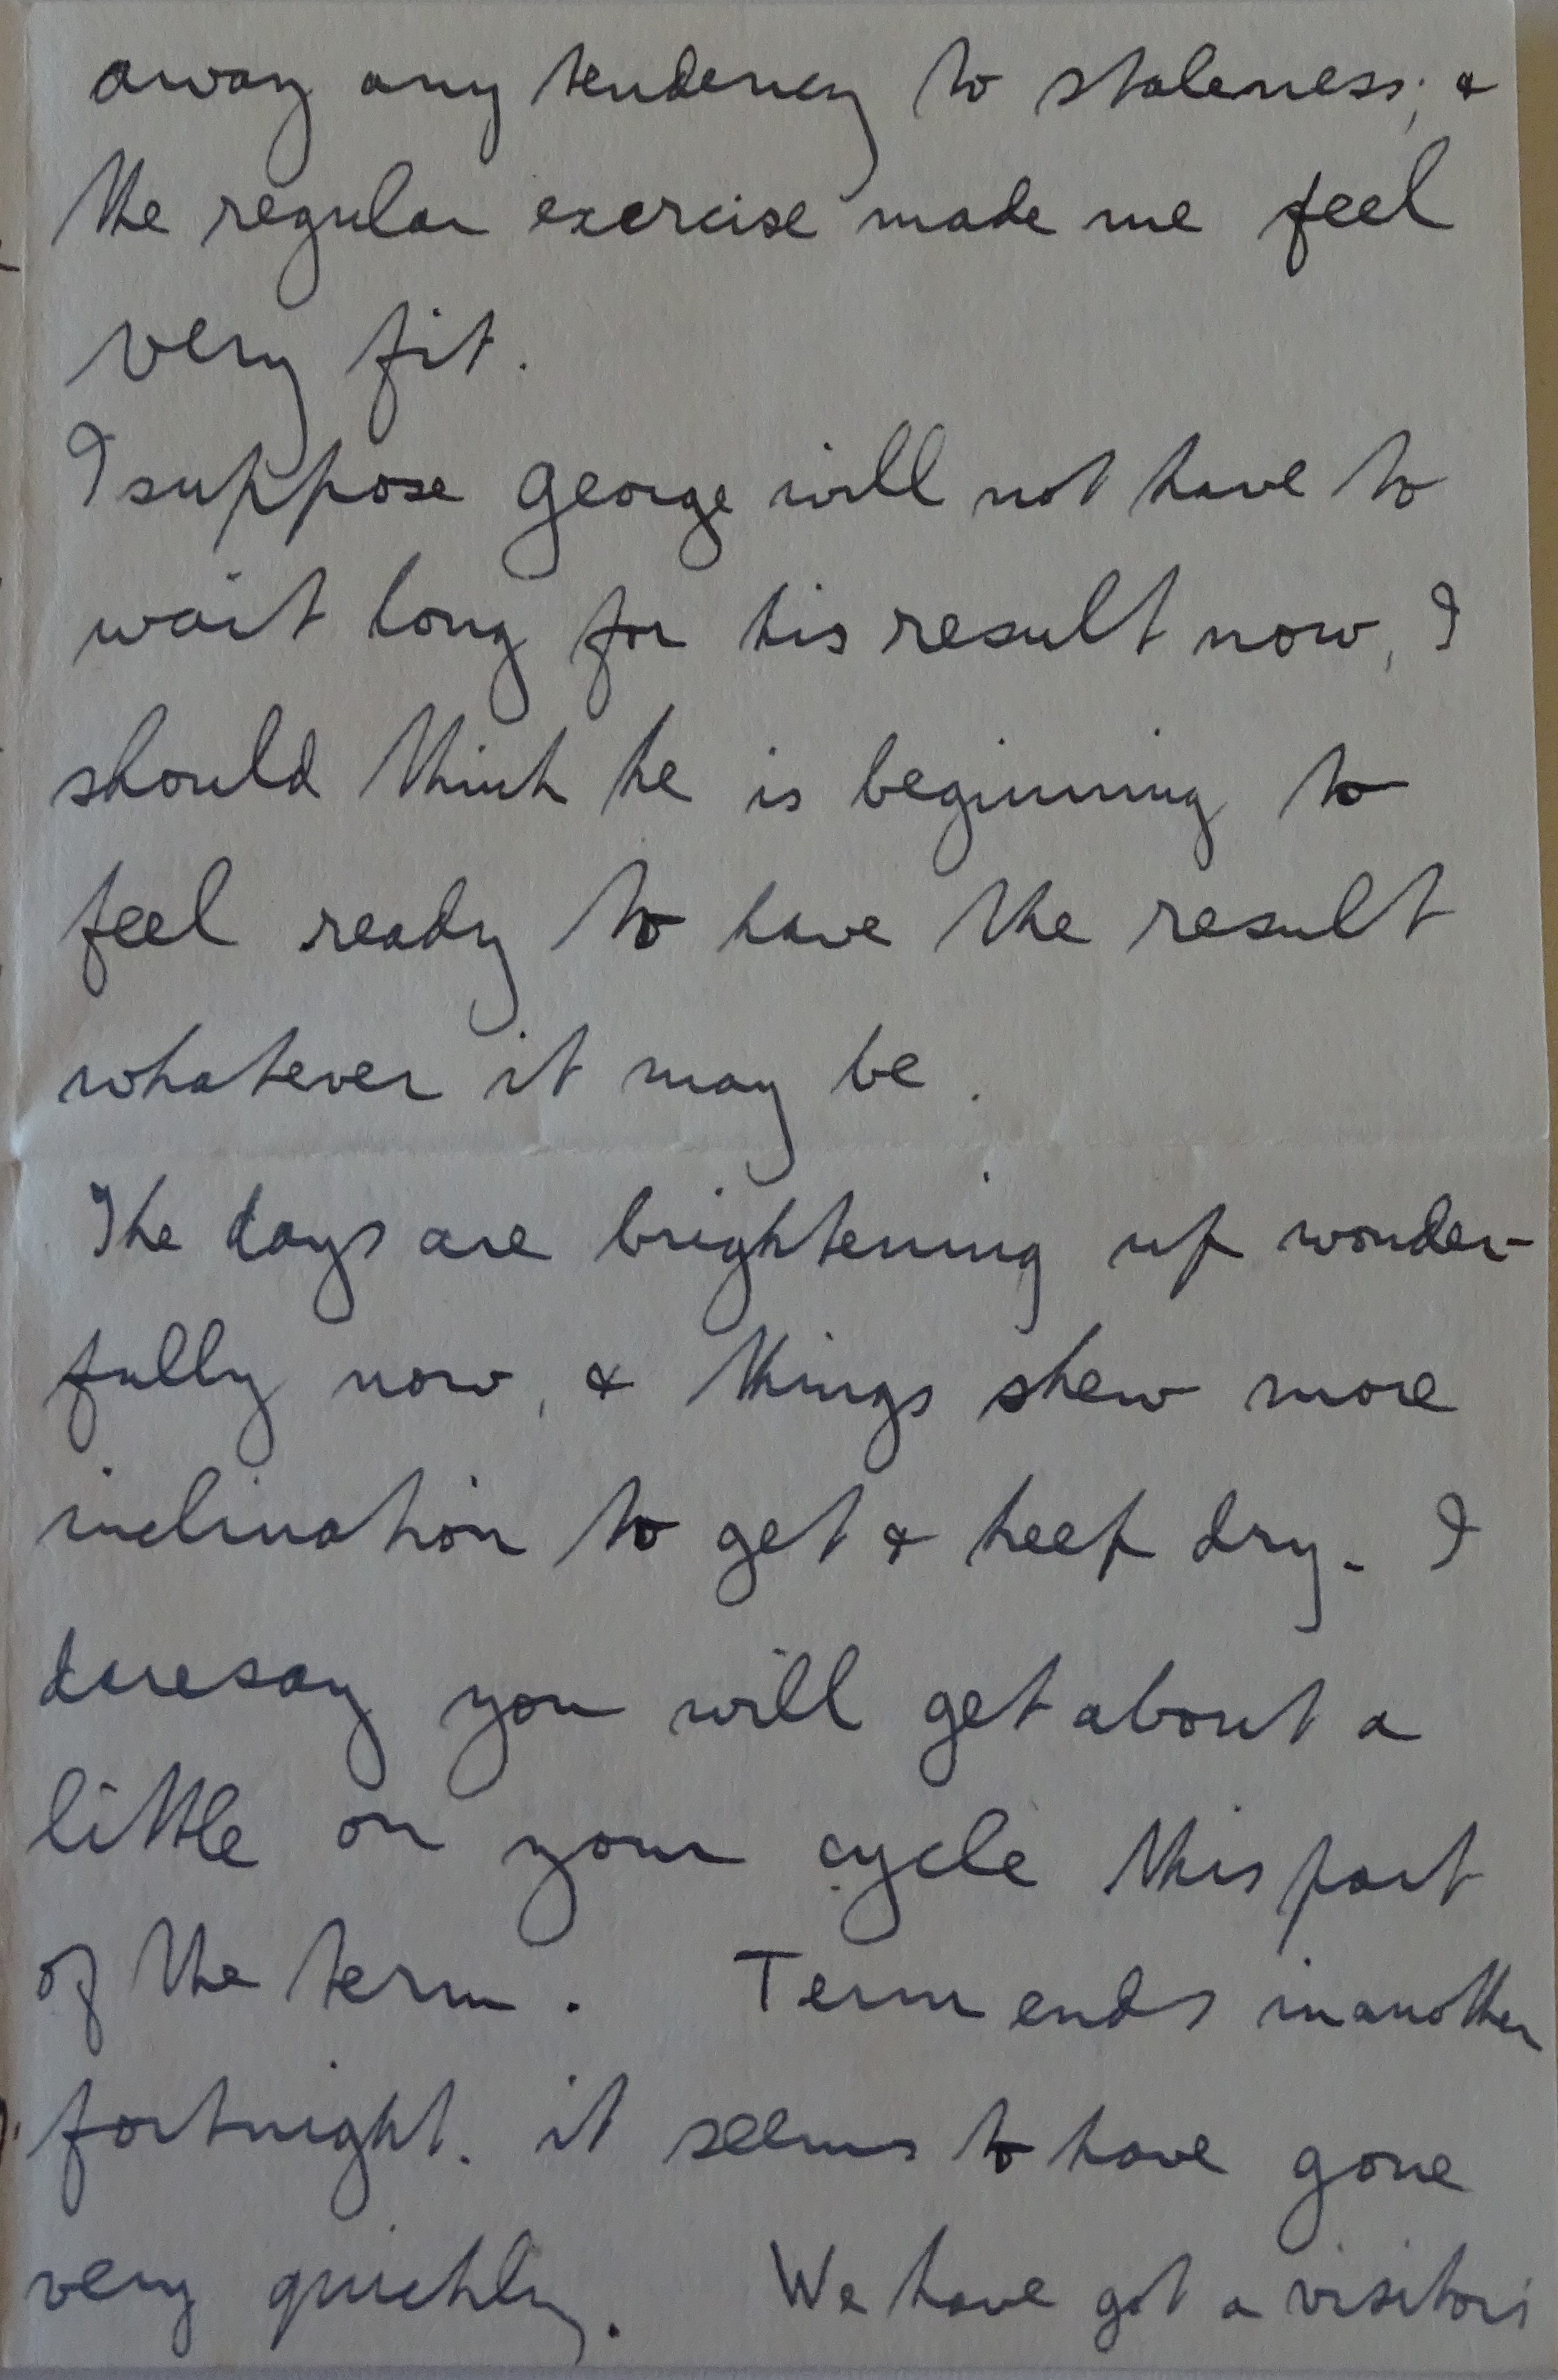 away any tendency to staleness; &
the regular exercise made me feel
very fit.
I suppose George will not have to
wait long for his result now, I
should think he is beginning to
feel ready to have the result
whatever it may be.
The days are brightening up wonder-
fully now, & things shew more
inclination to get & keep dry. I
daresay you will get about a
little on your cycle this part
of the term. Term ends in another
fortnight. it seems to have gone
very quickly. We have got a visitors'